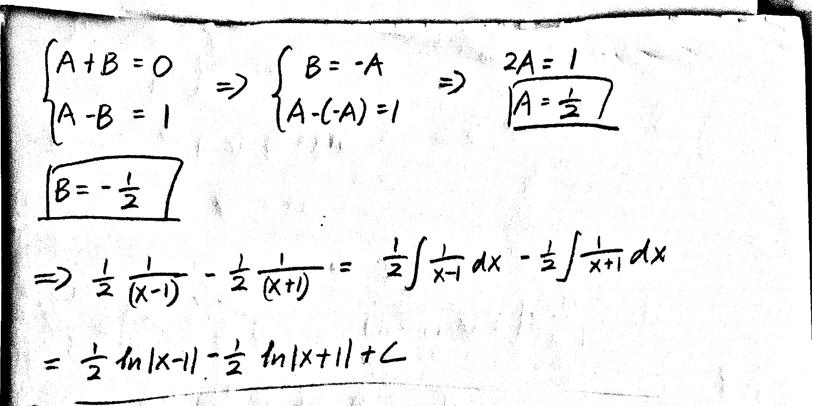 {A+B = 0 => {B = -A => 2A = 1
{A-B = 1 {A-(-A) = 1 A = 1/2
B = - 1/2
=> 1/2 1/(x-1) - 1/2 1/(x+1) = 1/2 ∫ 1/x-1 dx - 1/2 ∫ 1/x+1 dx
= 1/2 ln|x-1| - 1/2 ln|x+1| + C